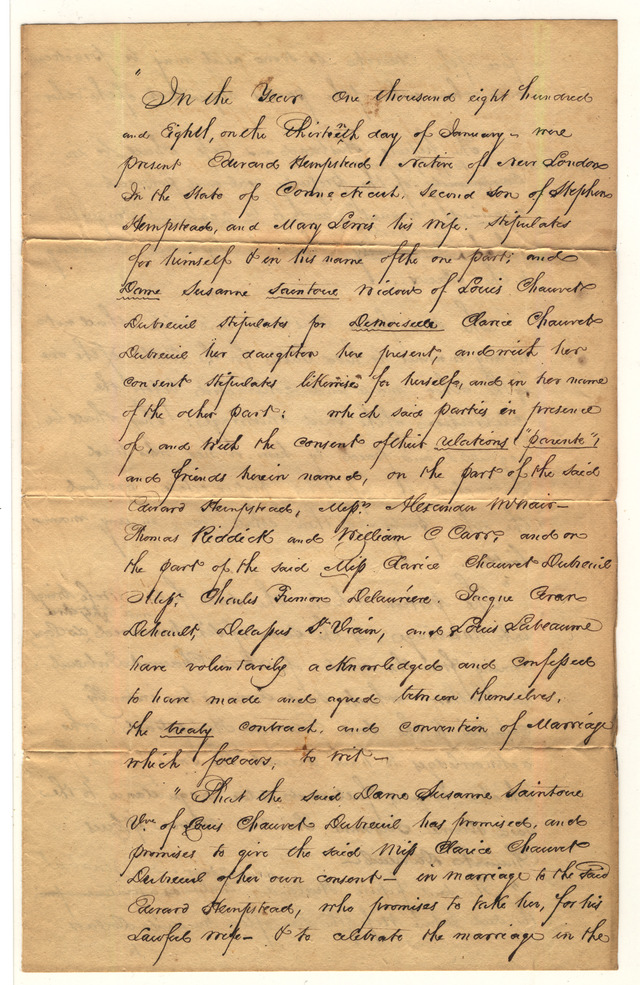 " In the Year One thousand eight hundred
and Eighth, on the Thirteenth day of January – were
present Edward Hempstead Native of New London
In the State of Connecticut, second son of Stephen
Hempstead, and Mary Lewis his Wife. Stipulates
for himself & in his name of the one part; and
Dame Susanne Saintoue Widow of Louis Chauvet
Dubreuil stipulates for Demoiselle Clarice Chauvet
Dubreuil her daughter here present, and with her
consent stipulates likewise for herself, and in her name
of the other part: which said parties in presence
of, and with the consent of their relations "parente",
and friends herein named, on the part of the said
Edward Hempstead, Messrs Alexander McNair –
Thomas Riddick and William C Carr, and on
the part of the said Miss Clarice Chauvet Dubreuil
Messr. Charles Fremon Delaurière. Jacque
Dehault, Delassus St. Vrain, and Louis Labeaume
have voluntarily acknowledged and confessed
to have made and agreed between themselves,
the treaty contract, and convention of Marriage
which follows, to wit –
" That the said Dame Susanne Saintoue
Vve of Louis Chauvet Dubreuil has promised, and
promises to give the said Miss Clarice Chauvet
Dubreuil of her own consent – in marriage to the said
Edward Hempstead, who promises to take her, for his
Lawful Wife – & to celebrate the marriage in the